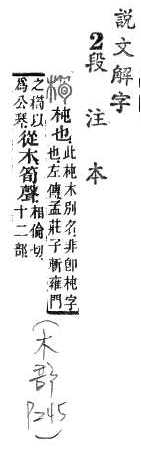 說文解字
2段注本
杶也此杶木別名非卽杶字
也左傳孟莊子斬雍門
之橁以
爲公琴
從木筍聲
相倫切
十二部
(木部
P245)